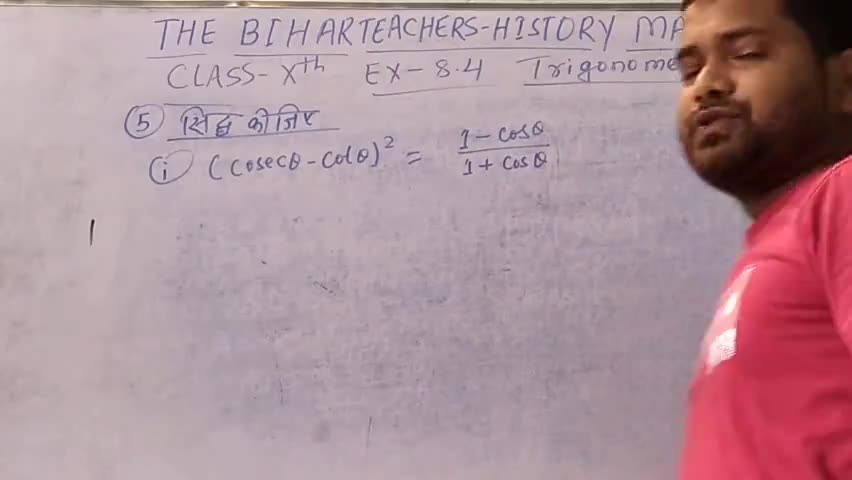 THE BIHAR TEACHERS-HISTORY MA
CLASS-Xth EX-8.4 Trigonome
5 सिद्ध कीजिए
i (cosecθ - cotθ)² = 1 - cosθ / 1 + cosθ